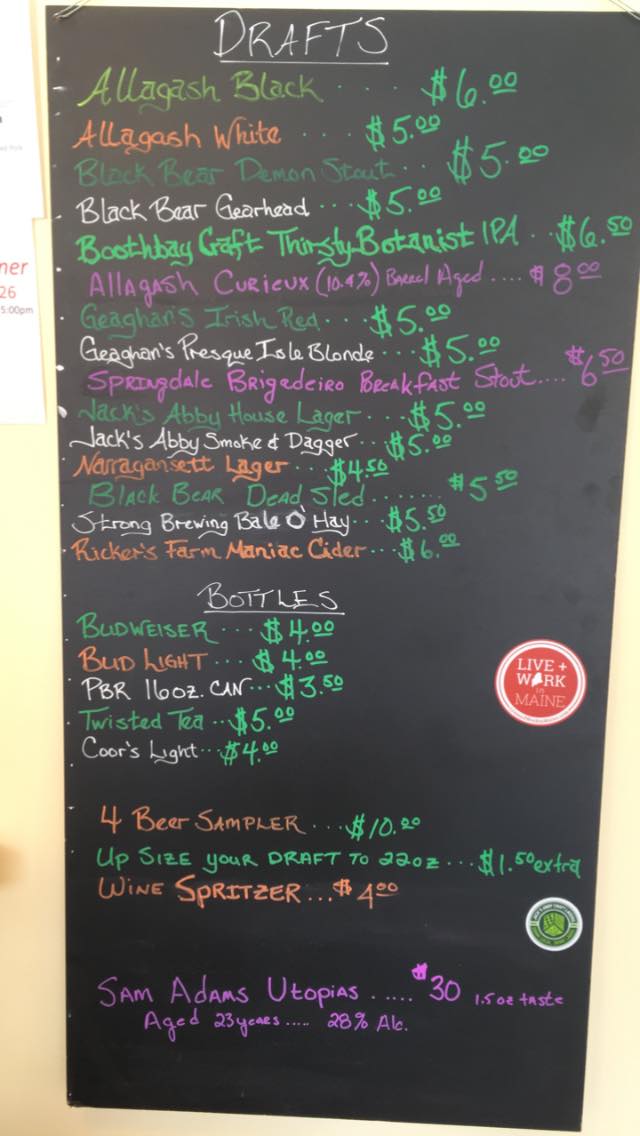 DRAFTS
Allagash Black . . . $6.00
Allagash White . . . $5.00
Black Bear Demon Stout . . $5.00
Black Bear Gearhead . . . $5.00
Boothbay Craft Thirsty Botanist IPA . . $6.50
Allagash Curieux (10.4%) Barrel Aged .... $8.00
Geaghan's Irish Red . . . $5.00
Geaghan's Presque Isle Blonde . . . $5.00
Springdale Brigadeiro Breakfast Stout.... $6.50
Jack's Abby House Lager . . . $5.00
Jack's Abby Smoke & Dagger . . . $5.00
Narragansett Lager . . . $4.50
Black Bear Dead Sled ........ $5.50
Strong Brewing Bale O' Hay . . . $5.50
Ricker's Farm Maniac Cider . . . $6.00
BOTTLES
Budweiser . . . $4.00
Bud Light . . . $4.00
PBR 16oz. can . . . $3.50
Twisted Tea . . . $5.00
Coor's Light . . . $4.00
LIVE +
WORK
in
MAINE
4 Beer Sampler . . . $10.00
Up size your draft to 22oz . . . $1.50 extra
Wine Spritzer ... $4.00
Sam Adams Utopias ..... $30 1.5 oz taste
Aged 23 years ..... 28% Alc.
ner
26
5:00pm